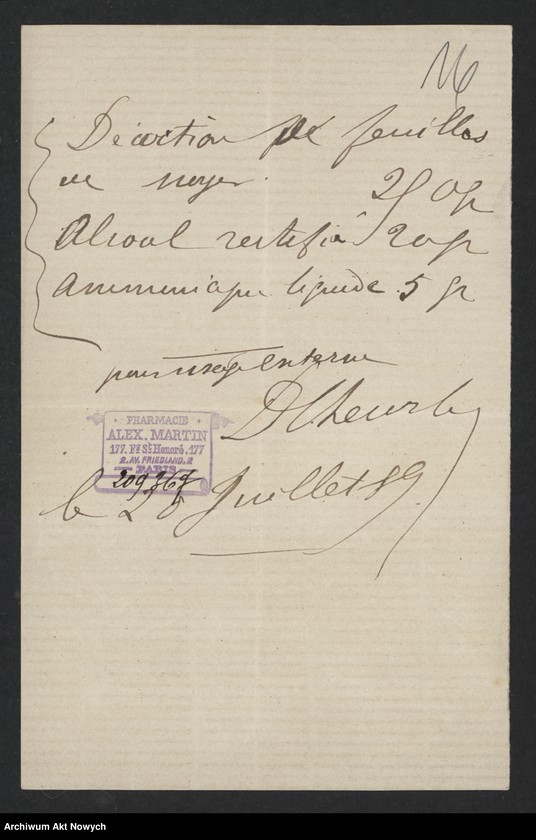 16
Décoction de feuilles
de noyer. 250 gr
Alcool rectifié 20 gr
Ammoniaque liquide 5 gr
pour usage externe
PHARMACIE
ALEX. MARTIN
177. Fg St Honoré. 177
2. AV. FRIEDLAND. 2
PARIS
209367
le 26 Juillet 89
Archiwum Akt Nowych